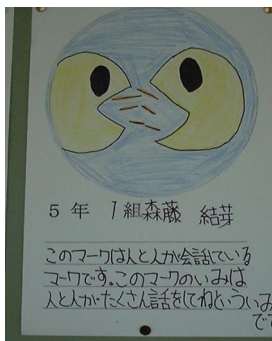 5年 1組森藤 結芽
このマークは人と人が会話している
マークです。このマークのいみは
人と人がたくさん話をしてねといういみ
です